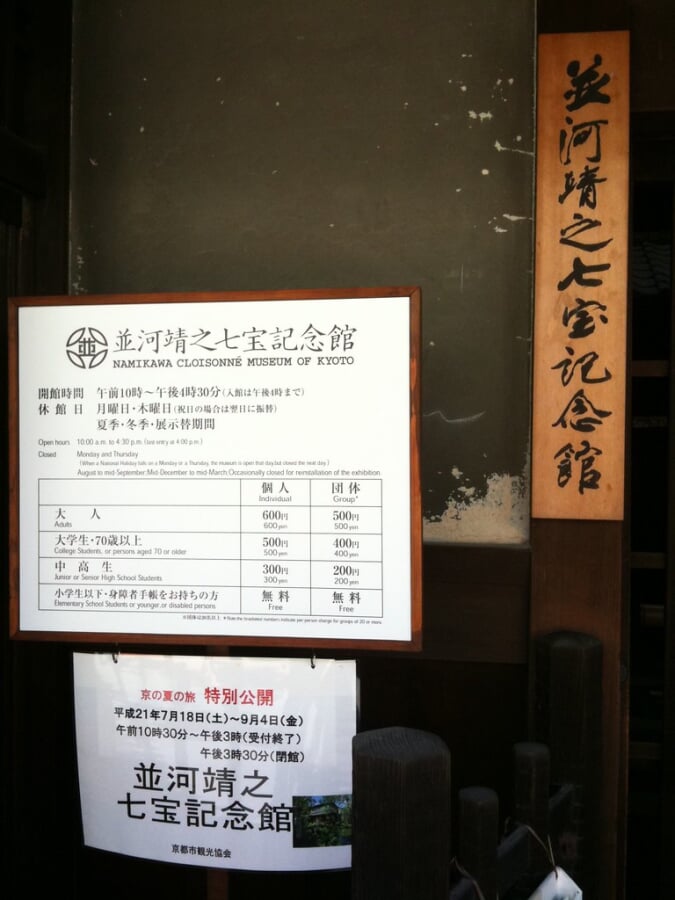 並河靖之七宝記念館
並
並河靖之七宝記念館
NAMIKAWA CLOISONNÉ MUSEUM OF KYOTO
開館時間 午前10時～午後4時30分(入館は午後4時まで)
休館日 月曜日・木曜日(祝日の場合は翌日に振替)
夏季・冬季・展示替期間
Open hours 10:00 a.m. to 4:30 p.m. (last entry at 4:00 p.m.)
Closed Monday and Thursday
(When a National Holiday falls on a Monday or a Thursday, the museum is open that day, but closed the next day.)
August to mid-September; Mid-December to mid-March; Occasionally closed for reinstallation of the exhibition.
個人 団体
Individual Group*
大人 600円 500円
Adults 600yen 500yen
大学生・70歳以上 500円 400円
College Students, or persons aged 70 or older 500yen 400yen
中高生 300円 200円
Junior or Senior High School Students 300yen 200yen
小学生以下・身障者手帳をお持ちの方 無料 無料
Elementary School Students or younger, or disabled persons Free Free
※団体は20名以上 *Note the break­down numbers indicate per person charge for groups of 20 or more.
京の夏の旅 特別公開
平成21年7月18日(土)～9月4日(金)
午前10時30分～午後3時(受付終了)
午後3時30分(閉館)
並河靖之
七宝記念館
京都市観光協会